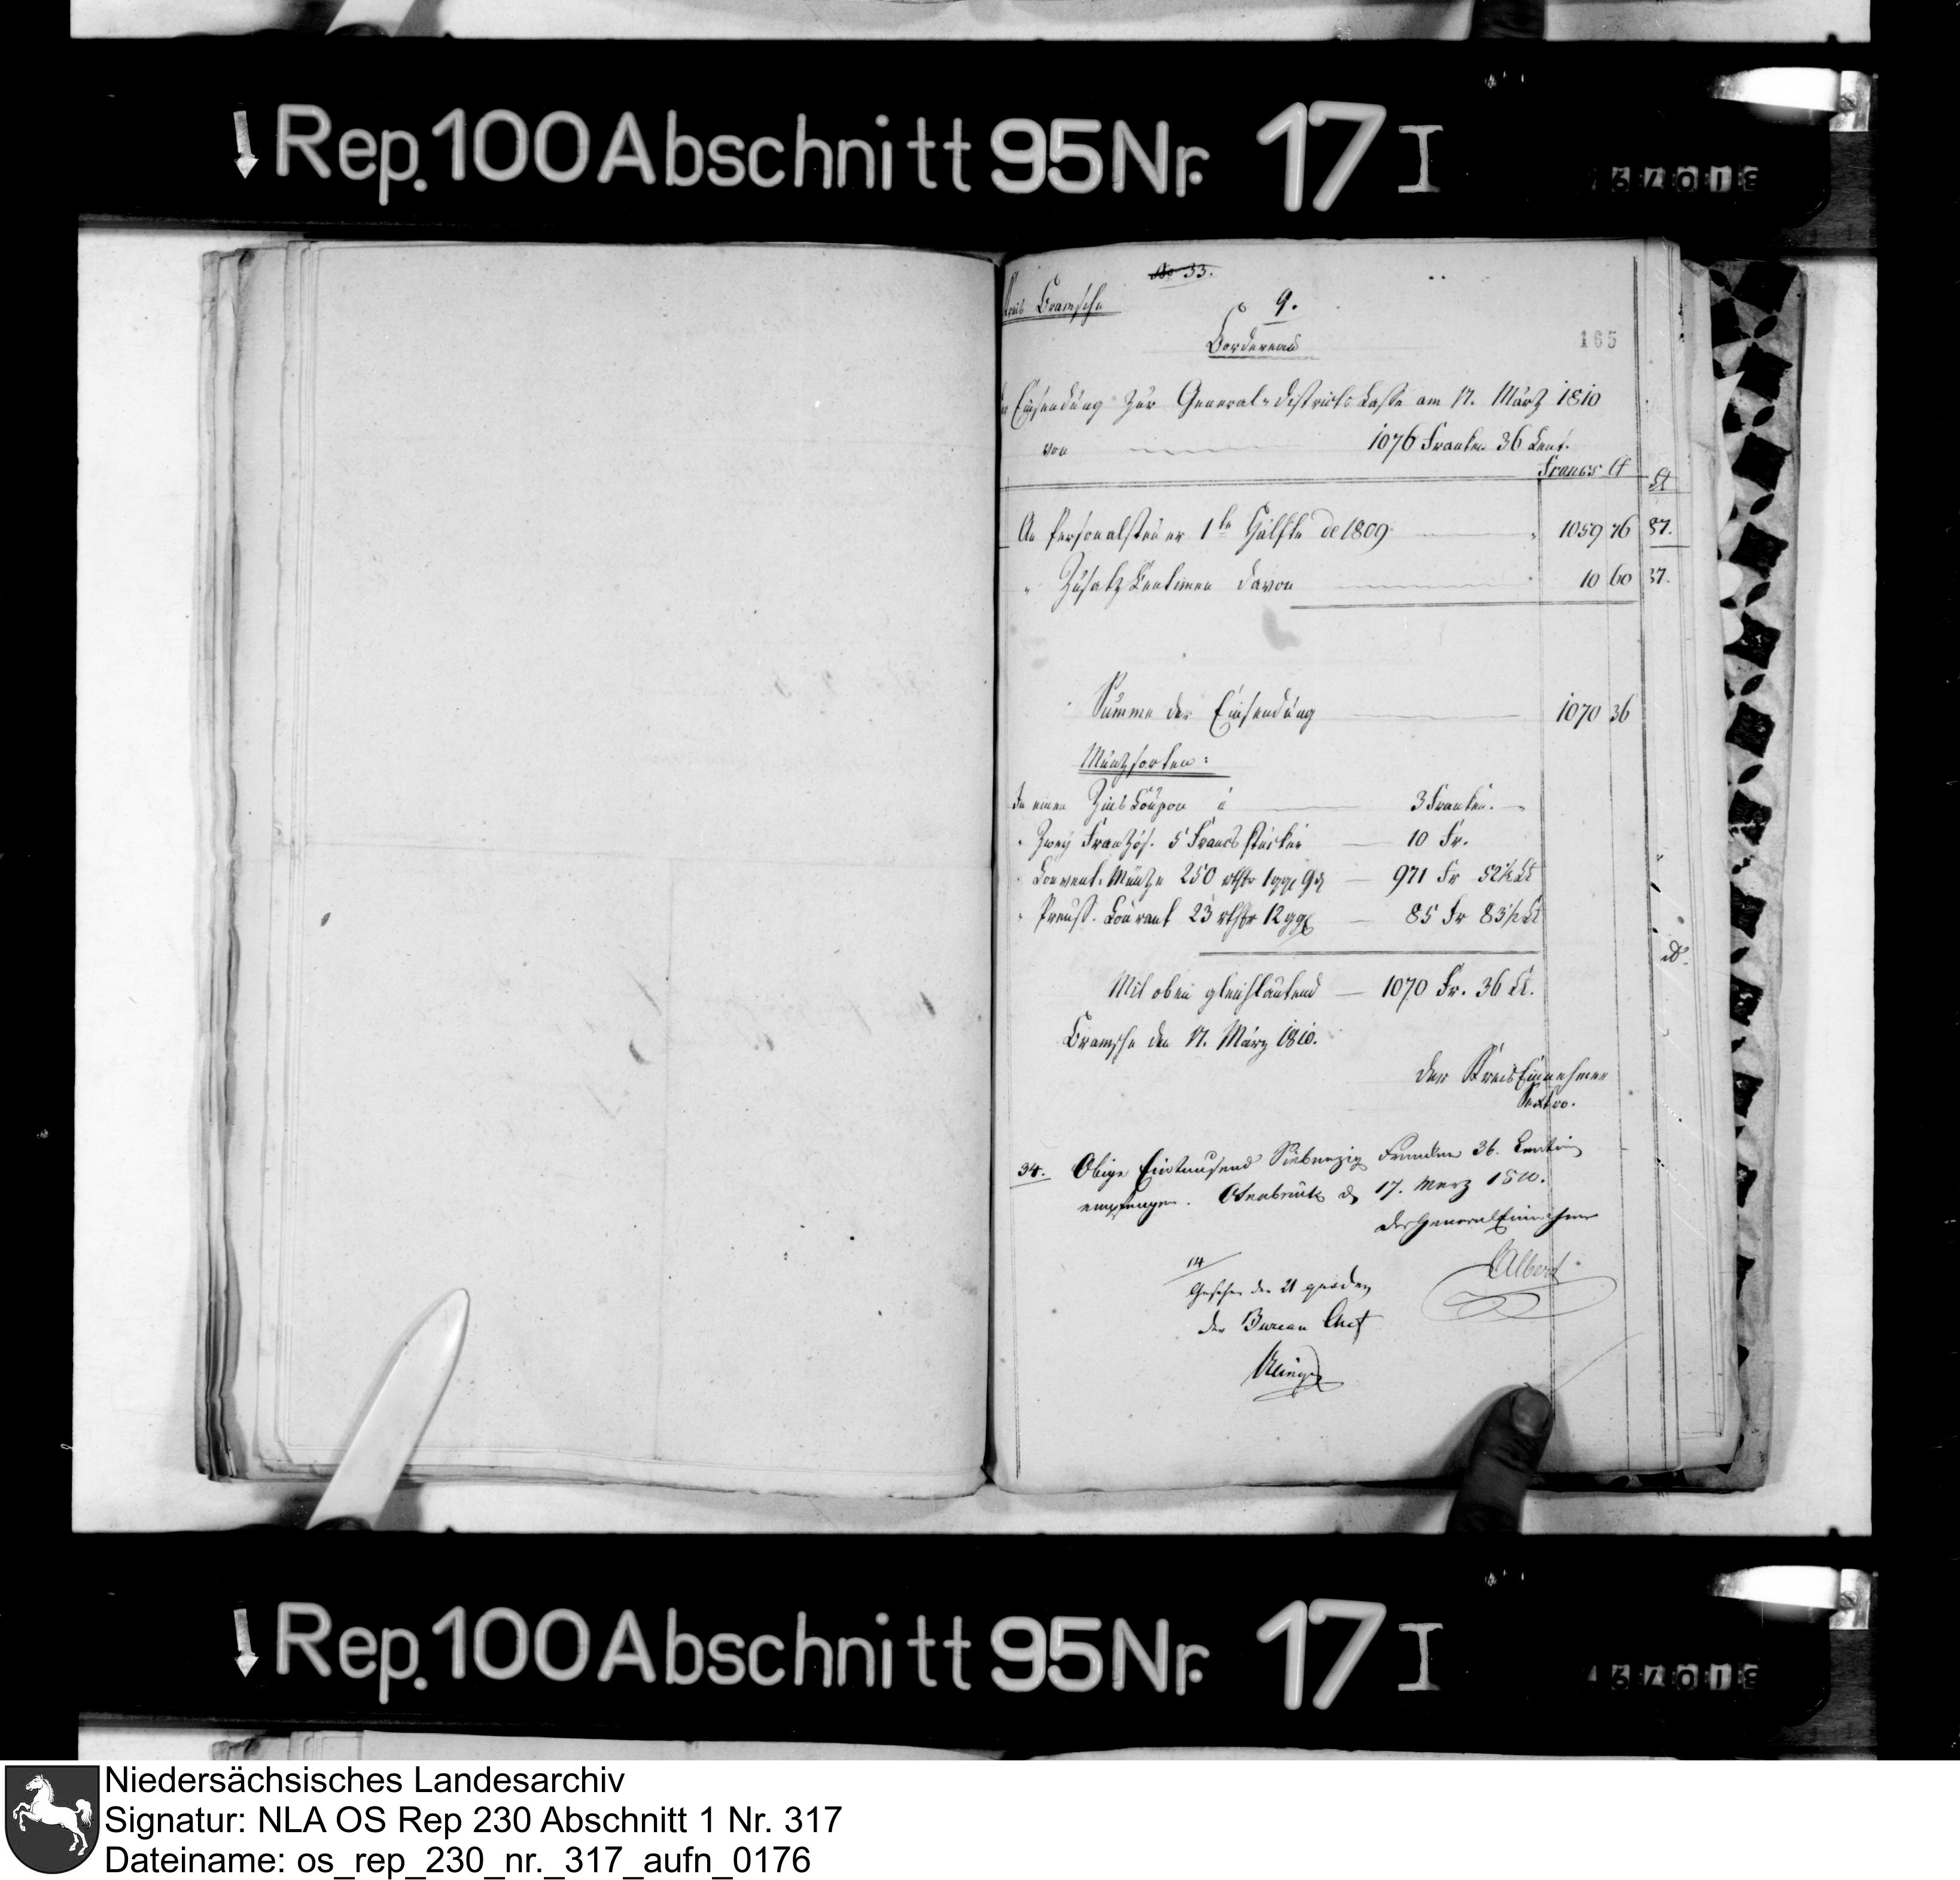 Rep. 100 Abschnitt 95 Nr. 17 I
No 33.
Kreis Bramsche
9.
Bordereau
165
der Einsendung zur General-Districts Casse am 17. März 1810
von 1076 Franken 36 Cent.
Francs Ct
Ct
An Personalsteuer 1te Hälfte de 1809 1059 76
37.
" Zusatz Centimen davon 10 60
37.
Summe der Einsendung 1070 36
Müntzsorten:
In einen Zins Coupon à 3 Franken.
" Zwey Französ. 5 Francs stücken 10 Fr.
" Convent. Müntze 250 rthlr 1 ggr 9 d 971 Fr 52½ Ct
" Preuss. Courant 23 rthlr 12 ggr 85 Fr 83½ Ct
Mit oben gleichlautend 1070 Fr. 36 Ct.
Bramsche den 17. März 1810.
Der Kreis Einnehmer
Sextro.
34. Obige Eintausend Siebenzig Franken 36. Centim
empfangen. Osnabrück d 17. Merz 1810.
Der General Einnehmer
Albers
14
Gesehen den 21
der Bureau Chef
Rep. 100 Abschnitt 95 Nr. 17 I
Niedersächsisches Landesarchiv
Signatur: NLA OS Rep 230 Abschnitt 1 Nr. 317
Dateiname: os_rep_230_nr._317_aufn_0176